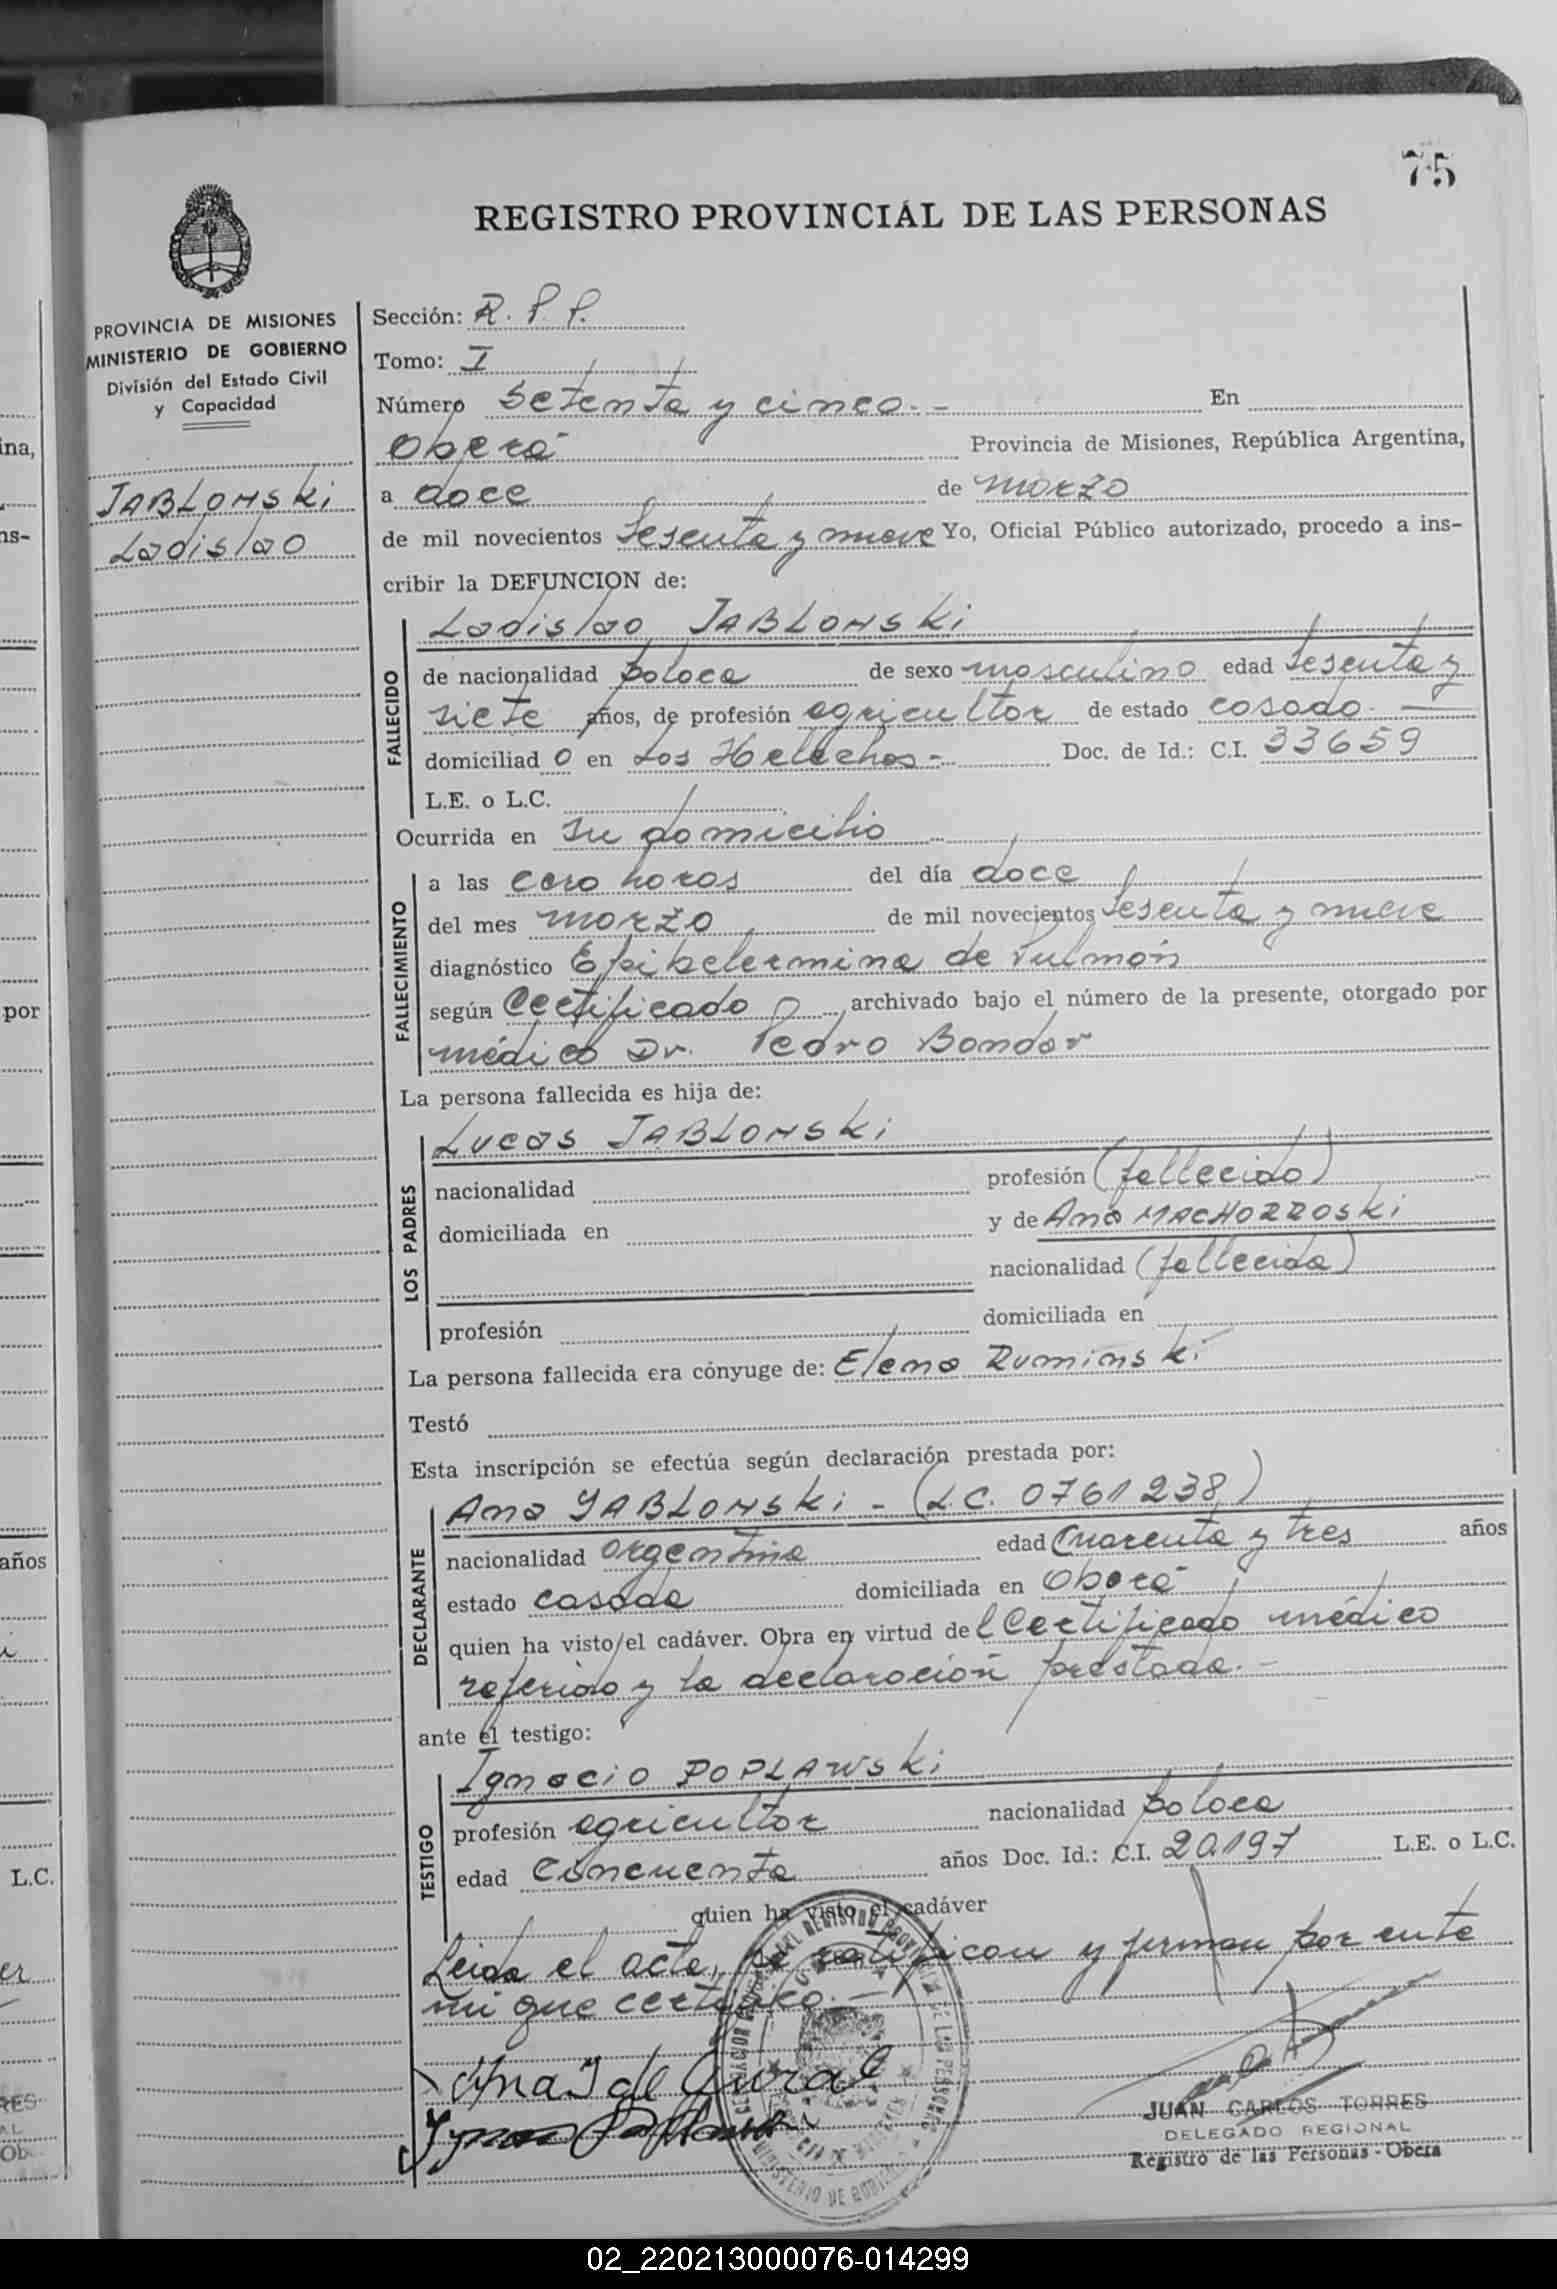 75
REGISTRO PROVINCIAL DE LAS PERSONAS
PROVINCIA DE MISIONES
MINISTERIO DE GOBIERNO
División del Estado Civil
y Capacidad
JABLONSKi
Ladislao
Sección: R. P. P.
Tomo: I
Número Setenta y cinco.- En
Oberá Provincia de Misiones, República Argentina,
a doce de marzo
de mil novecientos sesenta y nueve Yo, Oficial Público autorizado, procedo a ins-
cribir la DEFUNCION de:
Ladislao JABLONSKi
FALLECIDO
de nacionalidad polaca de sexo masculino edad sesenta y
siete años, de profesión agricultor de estado casado.-
domiciliad o en Los Helechos- Doc. de Id.: C.I. 33659
L.E. o L.C.
Ocurrida en su domicilio
FALLECIMIENTO
a las cero horas del día doce
del mes marzo de mil novecientos sesenta y nueve
diagnóstico de Pulmón
según Certificado archivado bajo el número de la presente, otorgado por
médico Dr. Pedro Bondar
La persona fallecida es hija de:
Lucas JABLONSKi
LOS PADRES
nacionalidad profesión (fallecido)
domiciliada en y de Ana MACHORROSKi
nacionalidad (fallecida)
profesión domiciliada en
La persona fallecida era cónyuge de: Elena Ruminski
Testó
Esta inscripción se efectúa según declaración prestada por:
Ana JABLONSKi - (L.C. 0761238)
DECLARANTE
nacionalidad argentina edad Cuarenta y tres años
estado casada domiciliada en Oberá
quien ha visto el cadáver. Obra en virtud del Certificado médico
referido y la declaración prestada.-
ante el testigo:
Ignacio POPLAWSKi
TESTIGO
profesión agricultor nacionalidad polaca
edad Cincuenta años Doc. Id.: C.I. 20.197 L.E. o L.C.
quien ha visto el cadáver
Leida el acta, se ratifican y firman por ante
mi que certifico.-
Ana J de Gural
JUAN CARLOS TORRES
DELEGADO REGIONAL
Registro de las Personas - Obera
02_220213000076-014299